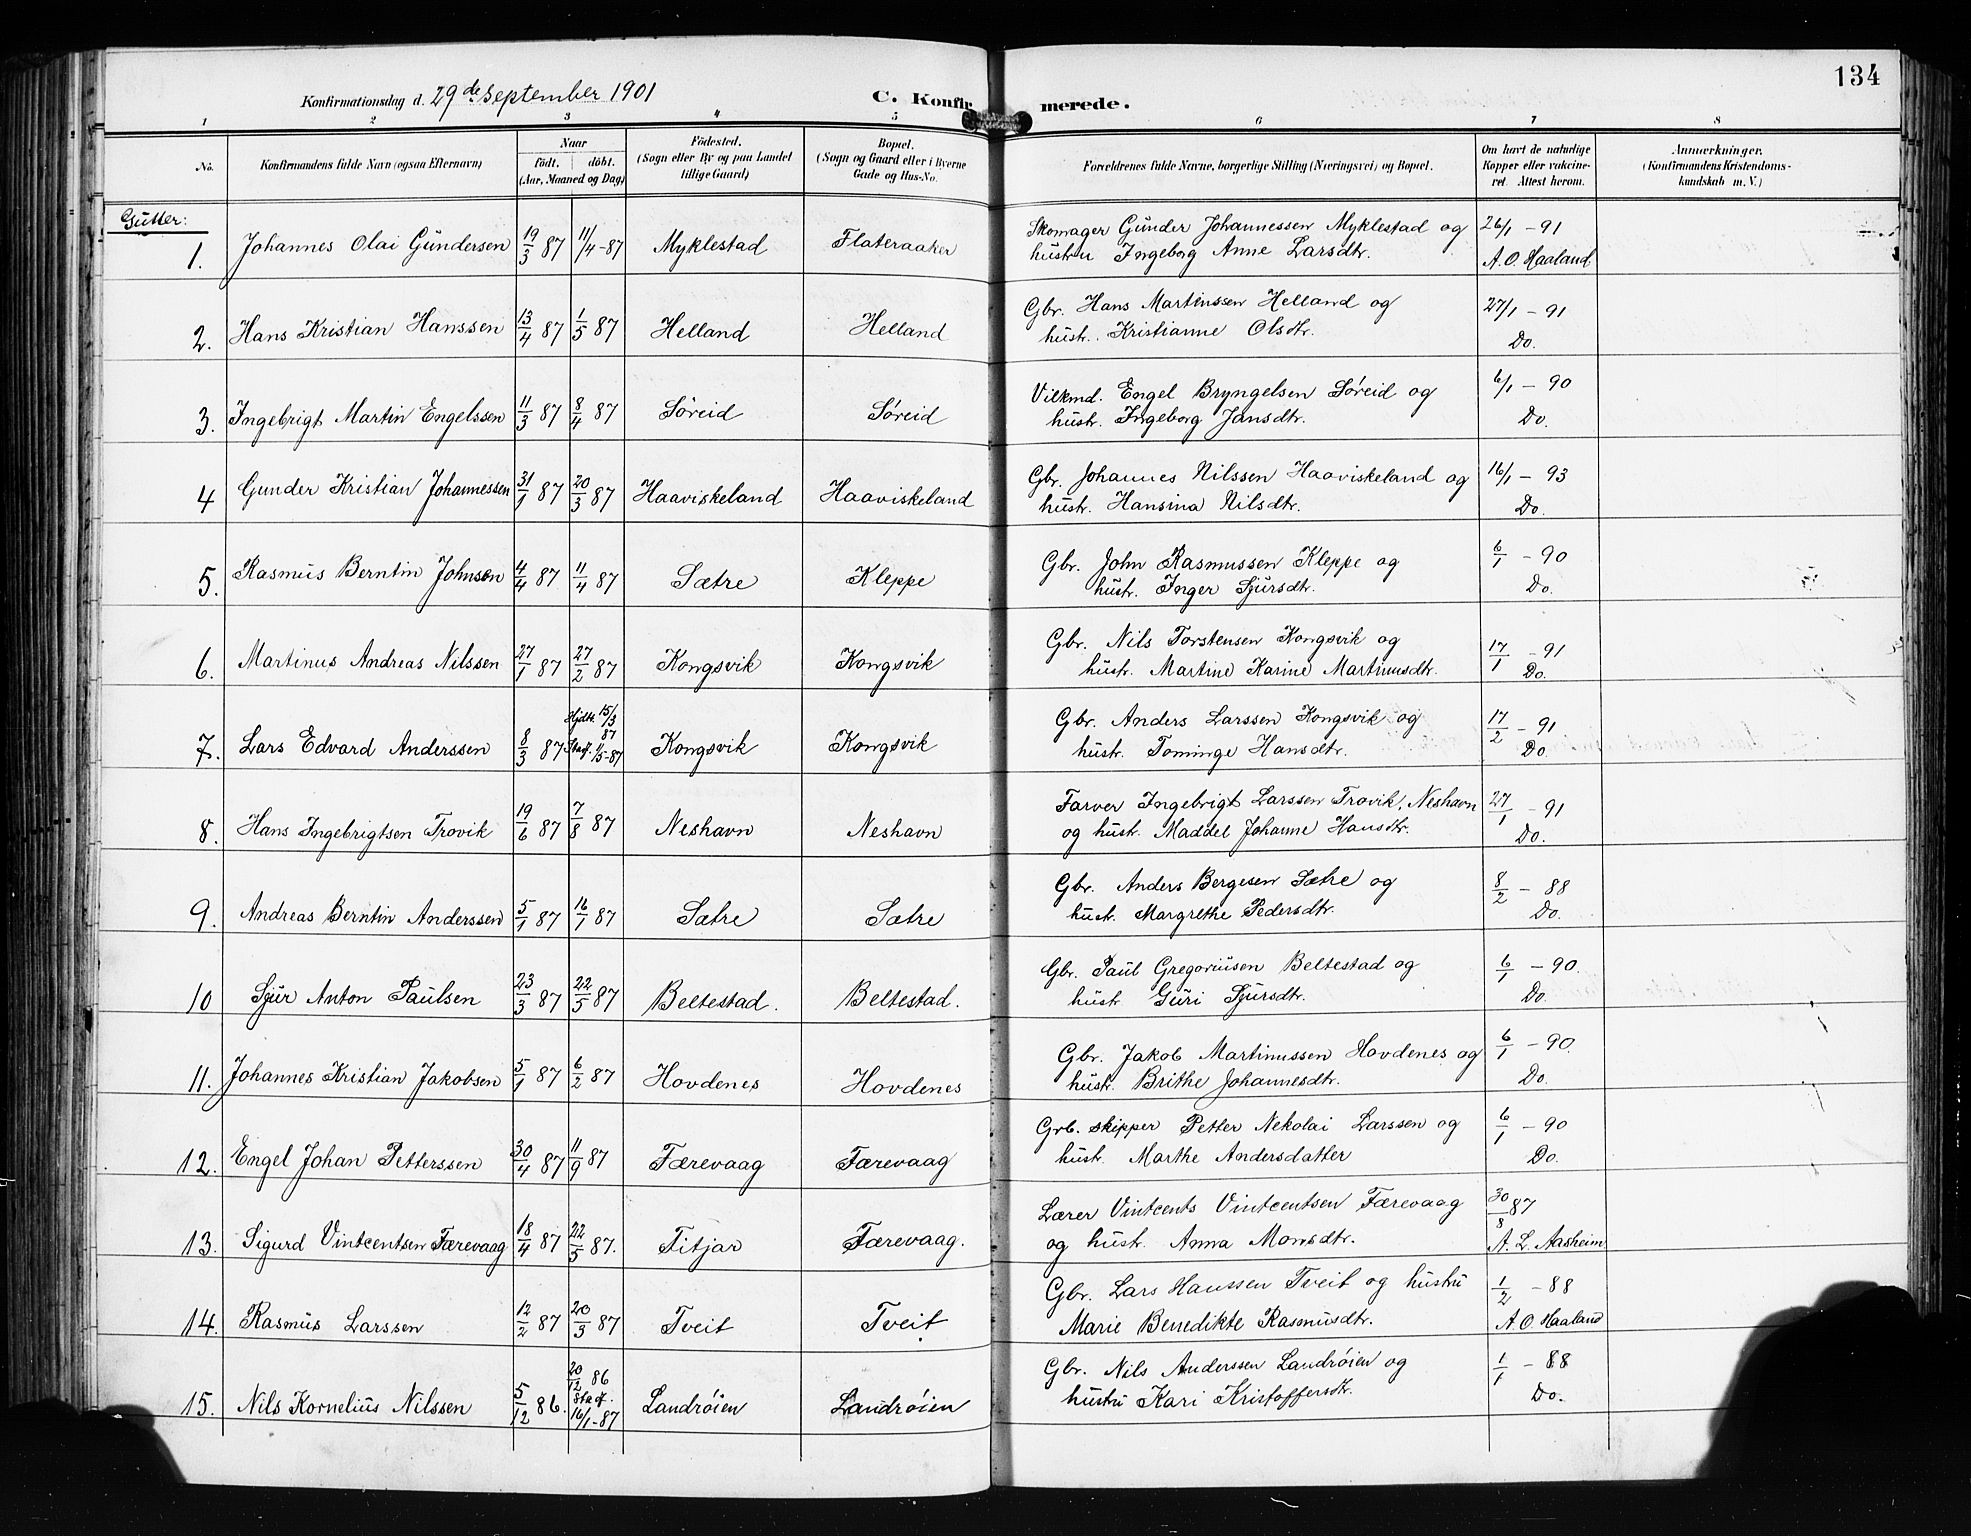 134
Konfirmationsdag d. 29de September 1901 C. Konfirmerede.
1 2 3 4 5 6 7 8
No. Konfirmandens fulde Navn (ogsaa Efternavn) Naar Födt. döbt. (Aar, Maaned og Dag) Födested. (Sogn eller By og paa Landet tillige Gaard) Bopæl. (Sogn og Gaard eller i Byerne Gade og Hus-No. Forældrenes fulde Navne, borgerlige Stilling (Næringsvei) og Bopæl. Om havt de naturlige Kopper eller vakcineret. Attest herom. Anmærkninger. (Konfirmandens Kristendomskundskab m. V.)
Gutter:
1. Johannes Olai Gundersen 19/3 87 11/4-87 Myklestad Flateraaker Skomager Gunder Johannessen Myklestad og 26/1 - 91
hustru Ingeborg Anne Larsdtr. A. O. Haaland
2. Hans Kristian Hanssen 13/4 87 1/5 87 Helland Helland Gbr. Hans Martinssen Helland og 27/1 - 91
hustr. Kristianne Olsdtr. Do.
3. Ingebrigt Martin Engelssen 11/3 87 8/4 87 Søreid Søreid Vilkmd. Engel Bryngelsen Søreid og 6/1 - 90
hustr. Ingeborg Jansdtr. Do.
4 Gunder Kristian Johannessen 31/1 87 20/3 87 Haaviskeland Haaviskeland Gbr. Johannes Nilssen Haaviskeland og 16/1 - 93
hustr. Hansina Nilsdtr. Do.
5. Rasmus Berntin Johnsen 4/4 87 11/4 87 Sætre Kleppe Gbr. John Rasmussen Kleppe og 6/1 - 90
hustr. Inger Sjursdtr. Do.
6. Martinus Andreas Nilssen 27/1 87 27/2 87 Kongsvik Kongsvik Gbr. Nils Torstensen Kongsvik og 17/1 - 91
hustr. Martine Karine Martinusdtr. Do.
7. Lars Edvard Anderssen 8/3 87 Hjdbt. 15/3 87 Stadf. 1/5-87 Kongsvik Kongsvik Gbr. Anders Larssen Kongsvik og 17/2 - 91
hustr. Tominge Hansdtr. Do.
8. Hans Ingebrigtsen Trovik 19/6 87 7/8 87 Neshavn Neshavn Farver Ingebrigt Larssen Trovik, Neshavn 27/1 - 91
og hustr. Maddel Johanne Hansdtr. Do.
9. Andreas Berntin Anderssen 5/1 87 16/1 87 Sætre Sætre Gbr. Anders Bergesen Sætre og 8/2 - 88
hustr. Margrethe Pedersdtr. Do.
10 Sjur Anton Paulsen 23/3 87 22/5 87 Beltestad. Beltestad. Gbr. Paul Gregoriusen Beltestad og 6/1 - 90.
hustr. Guri Sjursdtr. Do.
11. Johannes Kristian Jakobsen 5/1 87 6/2 87 Hovdenes Hovdenes Gbr. Jakob Martinussen Hovdenes og 6/1 - 90.
hustr. Brithe Johannesdtr. Do.
12. Engel Johan Petterssen 30/4 87 11/9 87 Færevaag Færevaag Grb. skipper Petter Nekolai Larssen og 6/1 - 90
hust. Marthe Andersdatter Do.
13. Sigurd Vintcentsen Færevaag 18/4 87 22/5 87. Fitjar Færevaag. Lærer Vintcents Vintcentsen Færevaag 30/8 87
og hustr. Anna Monsdtr. A. L. Aasheim
14. Rasmus Larssen 12/2 87 20/3 87 Tveit Tveit Gbr. Lars Hanssen Tveit og hustru 1/2 - 88
Marie Benedikte Rasmusdtr. A. O. Haaland
15. Nils Kornelius Nilssen 5/12 86. 20/12 86 Stadf. 16/1-87 Landrøien Landrøien Gbr. Nils Anderssen Landrøien og 1/1 - 88
hustru Kari Kristoffersdtr. Do.